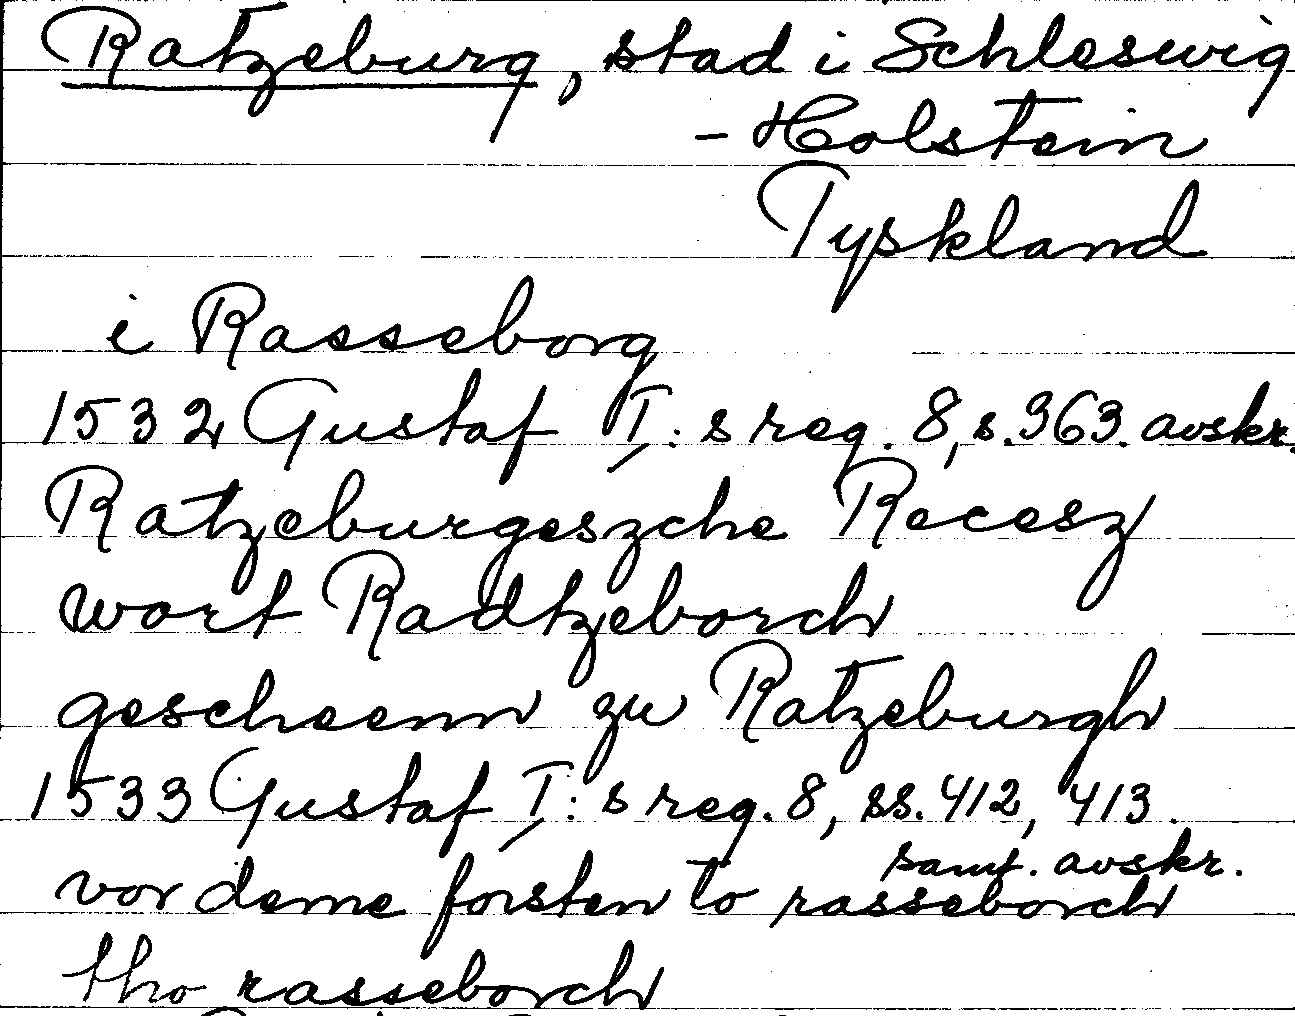 Ratzeburg, stad i Schleswig
-Holstein
Tyskland
i Rasseborg
1532 Gustaf I: s reg. 8, s. 363. avskr.
Ratzeburgeszche Recesz
wort Radtzeborch
gescheenn zu Ratzeburgh
1533 Gustaf I: s reg. 8, ss. 412, 413.
samt. avskr.
vor deme forsten to rasseborch
tho rasseborch